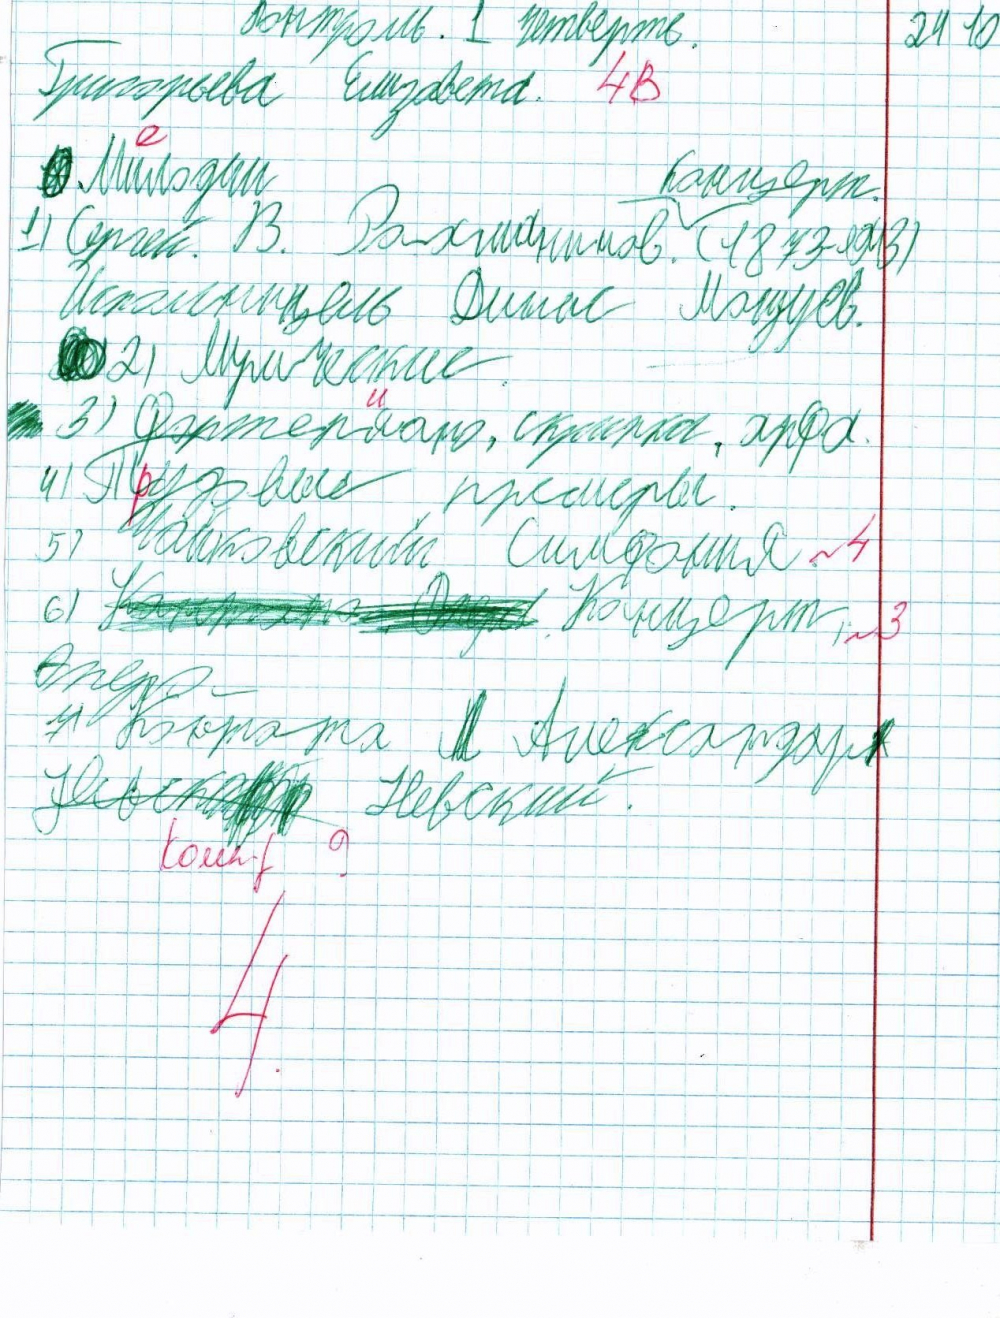 Контроль. 1 четверть. 24 10
Григорьева Елизавета. 4В
е
Милодии Концерт.
1) Сергей. В. Рахманинов. (1873-1943)
Исполнитель Денис Мацуев.
2) Лирические.
и
3) Фортепиано, скрипка, арфа.
4) Трудовые примеры.
5) Чайковский Симфония №4
6) Концерт, №3
Опера
7) Кантата Александр
Невский.
комп. ?
4